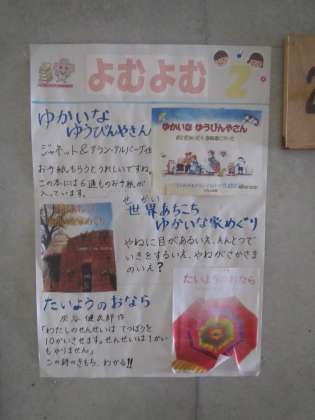 よむよむ 2
ゆかいな
ゆうびんやさん
ジャネット&アラン・アルバーグ作
お手紙もらうとうれしいですね。
この本には6通ものお手紙が
入っています。
ゆかいな ゆうびんやさん
せかい
世界あちこち
ゆかいな家めぐり
やねに目があるいえ、えんとつで
いきをするいえ、やねがさかさま
のいえ?
たいようのおなら
灰谷健次郎作
「わたしのせんせいは てつぼうを
10かいさせます。せんせいは1かい
もやりません」
この詩のきもち、わかる!!
たいようのおなら
2